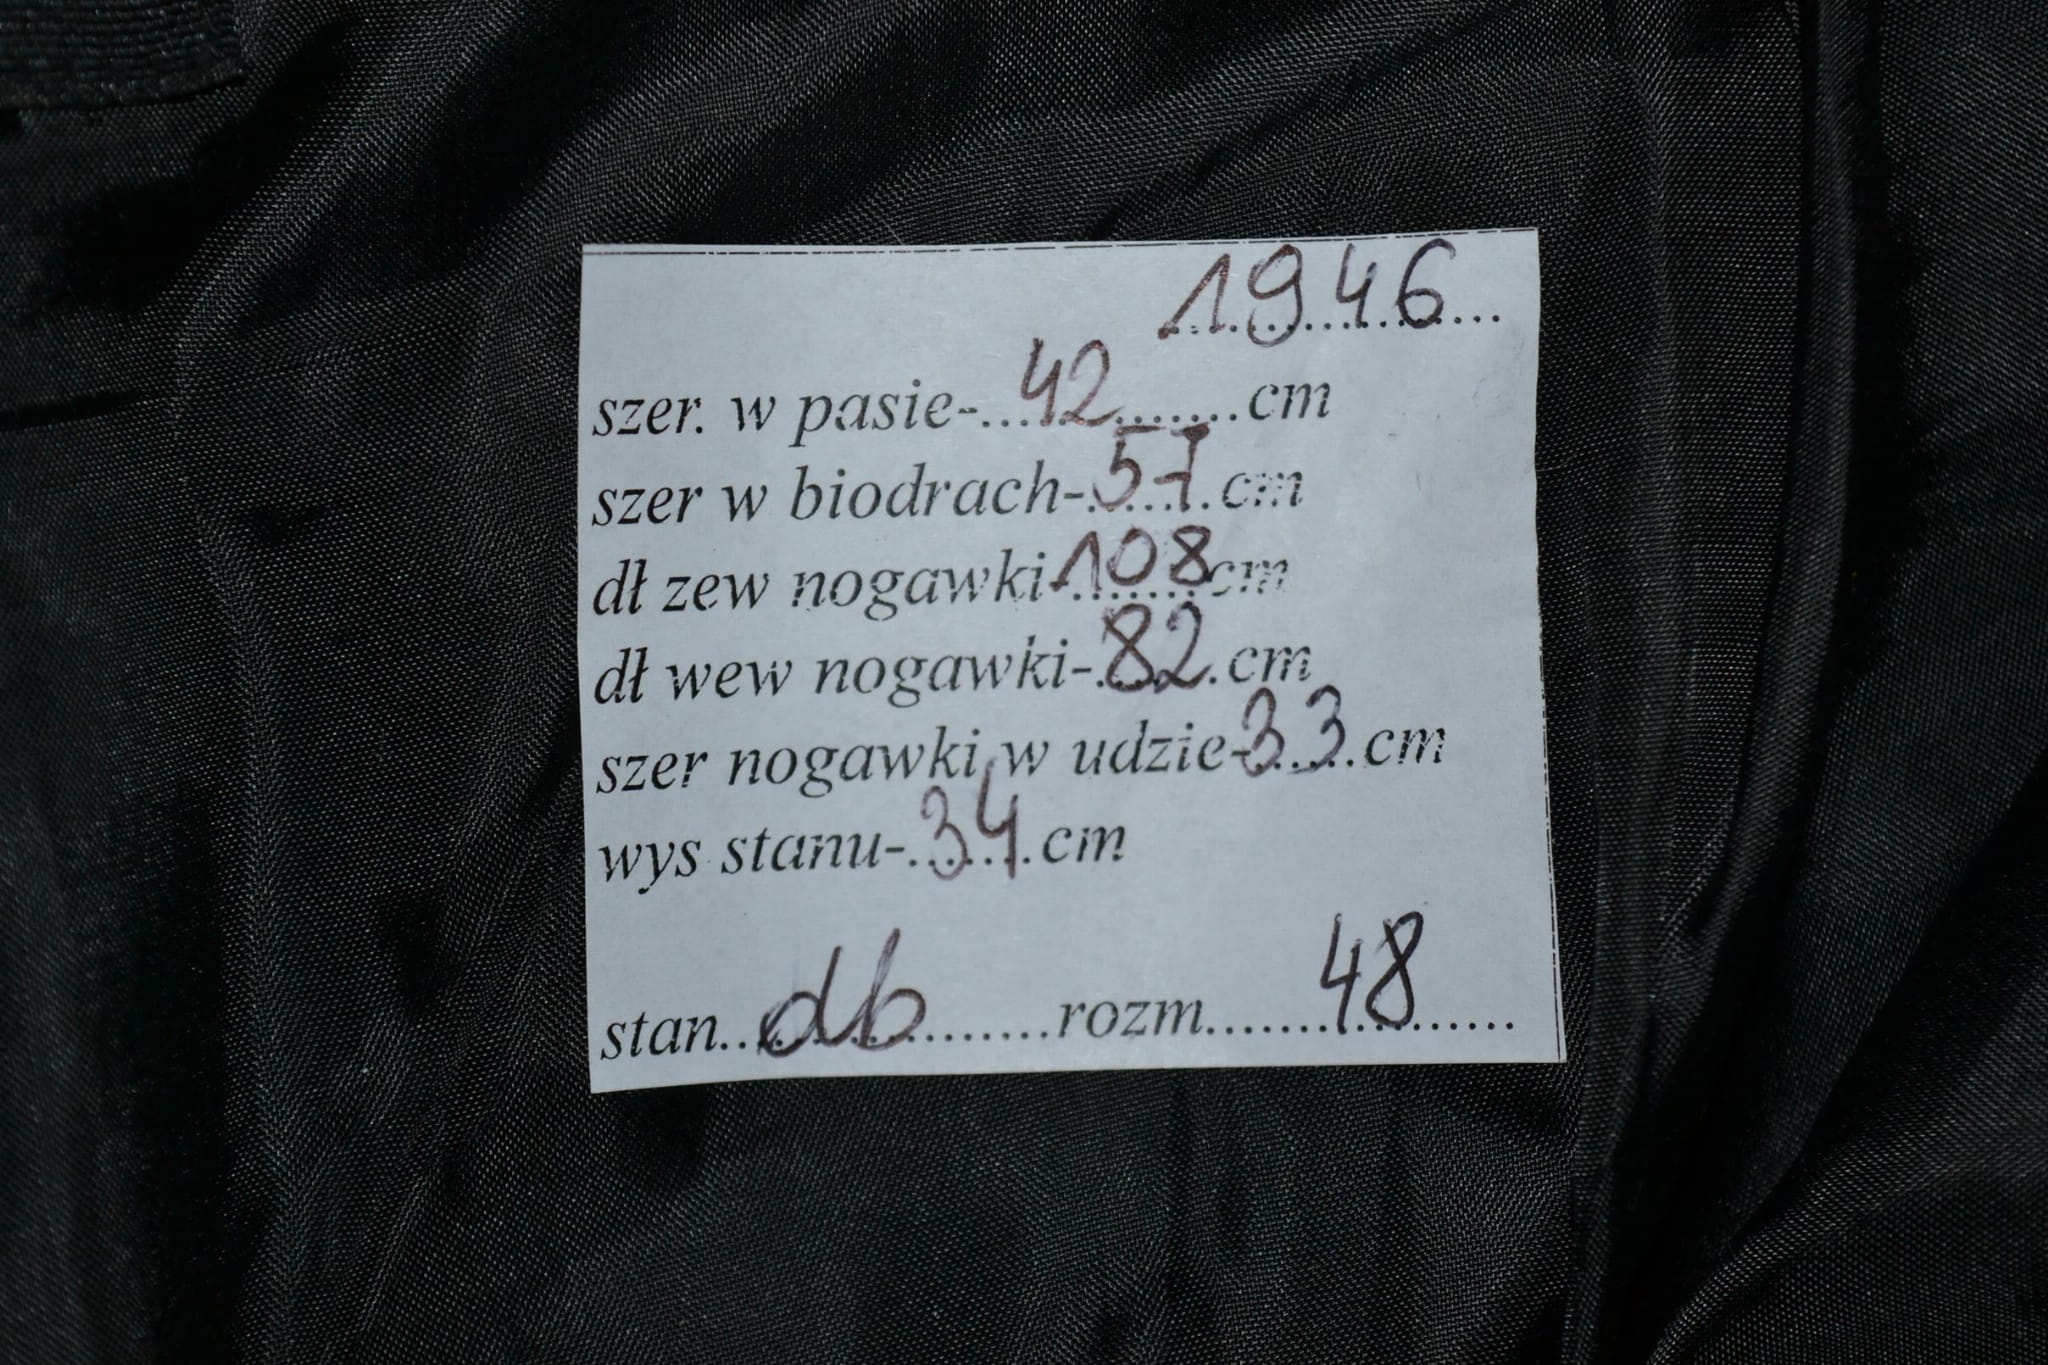 1946
szer. w pasie-...42.......cm
szer w biodrach-.57.cm
dł zew nogawki-108cm
dł wew nogawki-.82.cm
szer nogawki w udzie-33.cm
wys stanu-.34.cm
stan...db........rozm.......48.......